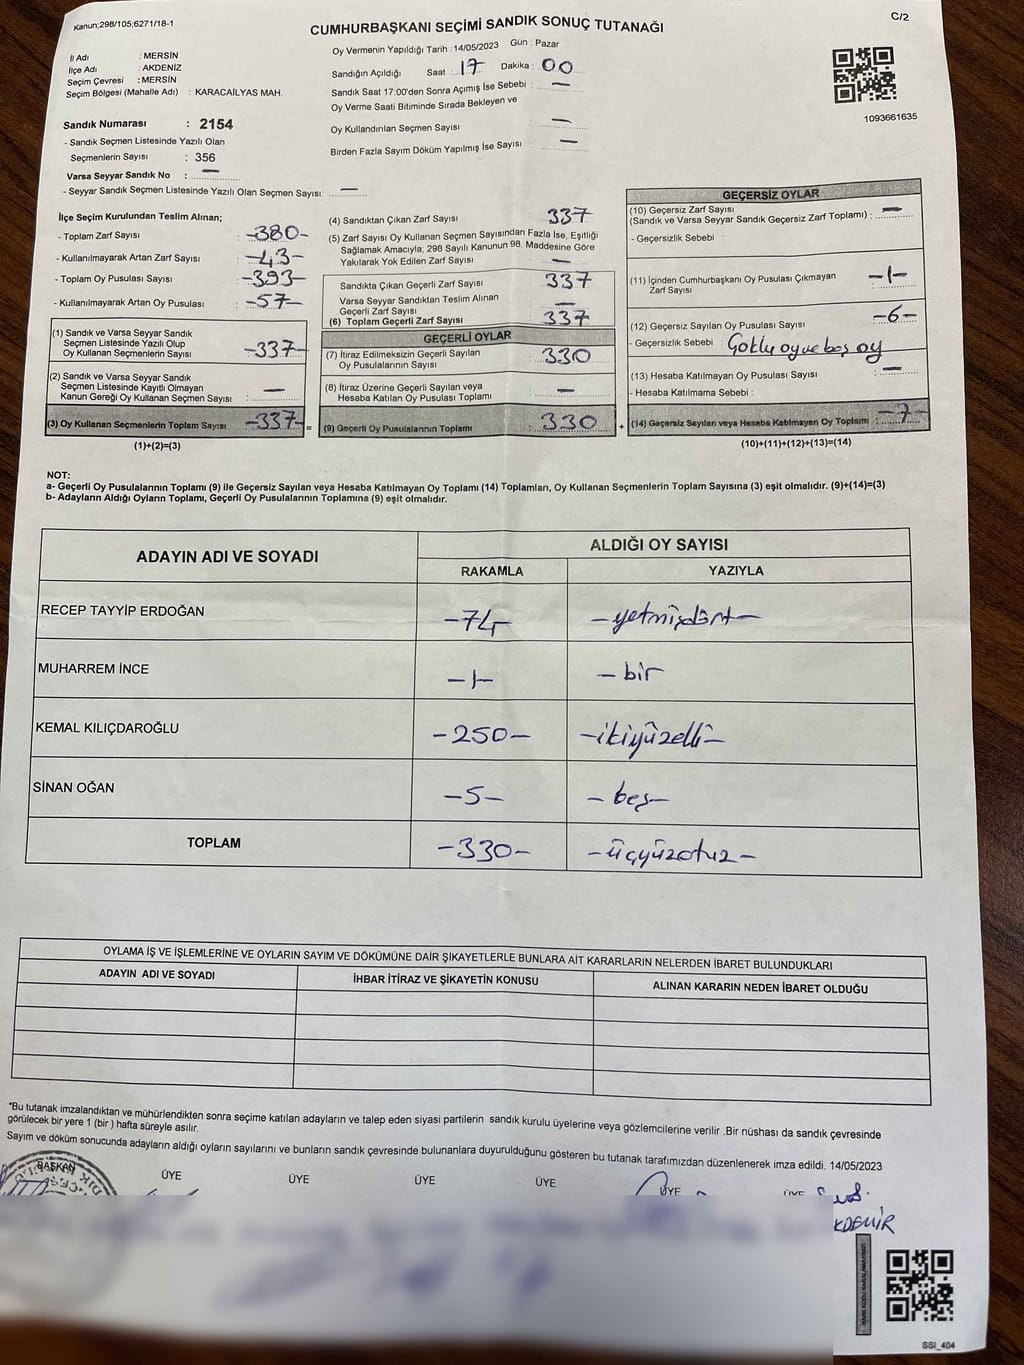 Kanun;298/105;6271/18-1
C/2
CUMHURBAŞKANI SEÇİMİ SANDIK SONUÇ TUTANAĞI
İl Adı : MERSİN
İlçe Adı : AKDENİZ
Seçim Çevresi : MERSİN
Seçim Bölgesi (Mahalle Adı) : KARACAİLYAS MAH.
Sandık Numarası : 2154
- Sandık Seçmen Listesinde Yazılı Olan
Seçmenlerin Sayısı : 356
Varsa Seyyar Sandık No : —
- Seyyar Sandık Seçmen Listesinde Yazılı Olan Seçmen Sayısı: —
Oy Vermenin Yapıldığı Tarih : 14/05/2023 Gün : Pazar
Sandığın Açıldığı Saat : 17 Dakika : 00
Sandık Saat 17:00'den Sonra Açımış İse Sebebi : —
Oy Verme Saati Bitiminde Sırada Bekleyen ve
Oy Kullandırılan Seçmen Sayısı —
Birden Fazla Sayım Döküm Yapılmış İse Sayısı —
1093661635
İlçe Seçim Kurulundan Teslim Alınan;
- Toplam Zarf Sayısı : -380-
- Kullanılmayarak Artan Zarf Sayısı : -43-
- Toplam Oy Pusulası Sayısı : -393-
- Kullanılmayarak Artan Oy Pusulası : -57-
(1) Sandık ve Varsa Seyyar Sandık
Seçmen Listesinde Yazılı Olup
Oy Kullanan Seçmenlerin Sayısı : -337-
(2) Sandık ve Varsa Seyyar Sandık
Seçmen Listesinde Kayıtlı Olmayan
Kanun Gereği Oy Kullanan Seçmen Sayısı : —
(3) Oy Kullanan Seçmenlerin Toplam Sayısı : -337-
(1)+(2)=(3)
(4) Sandıktan Çıkan Zarf Sayısı 337
(5) Zarf Sayısı Oy Kullanan Seçmen Sayısından Fazla İse, Eşitliği
Sağlamak Amacıyla; 298 Sayılı Kanunun 98. Maddesine Göre
Yakılarak Yok Edilen Zarf Sayısı —
Sandıkta Çıkan Geçerli Zarf Sayısı 337
Varsa Seyyar Sandıktan Teslim Alınan
Geçerli Zarf Sayısı —
(6) Toplam Geçerli Zarf Sayısı 337
GEÇERLİ OYLAR
(7) İtiraz Edilmeksizin Geçerli Sayılan
Oy Pusulalarının Sayısı 330
(8) İtiraz Üzerine Geçerli Sayılan veya
Hesaba Katılan Oy Pusulası Toplamı —
= (9) Geçerli Oy Pusulalarının Toplamı 330 +
GEÇERSİZ OYLAR
(10) Geçersiz Zarf Sayısı
(Sandık ve Varsa Seyyar Sandık Geçersiz Zarf Toplamı) : —
- Geçersizlik Sebebi :
(11) İçinden Cumhurbaşkanı Oy Pusulası Çıkmayan
Zarf Sayısı -1-
(12) Geçersiz Sayılan Oy Pusulası Sayısı -6-
- Geçersizlik Sebebi : Çoklu oy ve boş oy
(13) Hesaba Katılmayan Oy Pusulası Sayısı —
- Hesaba Katılmama Sebebi :
(14) Geçersiz Sayılan veya Hesaba Katılmayan Oy Toplamı : -7-
(10)+(11)+(12)+(13)=(14)
NOT:
a- Geçerli Oy Pusulalarının Toplamı (9) ile Geçersiz Sayılan veya Hesaba Katılmayan Oy Toplamı (14) Toplamları, Oy Kullanan Seçmenlerin Toplam Sayısına (3) eşit olmalıdır. (9)+(14)=(3)
b- Adayların Aldığı Oyların Toplamı, Geçerli Oy Pusulalarının Toplamına (9) eşit olmalıdır.
ADAYIN ADI VE SOYADI
ALDIĞI OY SAYISI
RAKAMLA YAZIYLA
RECEP TAYYİP ERDOĞAN -74- -yetmişdört-
MUHARREM İNCE -1- -bir
KEMAL KILIÇDAROĞLU -250- -ikiyüzelli-
SİNAN OĞAN -5- -beş-
TOPLAM -330- -üçyüzotuz-
OYLAMA İŞ VE İŞLEMLERİNE VE OYLARIN SAYIM VE DÖKÜMÜNE DAİR ŞİKAYETLERLE BUNLARA AİT KARARLARIN NELERDEN İBARET BULUNDUKLARI
ADAYIN ADI VE SOYADI İHBAR İTİRAZ VE ŞİKAYETİN KONUSU ALINAN KARARIN NEDEN İBARET OLDUĞU
*Bu tutanak imzalandıktan ve mühürlendikten sonra seçime katılan adayların ve talep eden siyasi partilerin sandık kurulu üyelerine veya gözlemcilerine verilir .Bir nüshası da sandık çevresinde
görülecek bir yere 1 (bir ) hafta süreyle asılır.
Sayım ve döküm sonucunda adayların aldığı oyların sayılarını ve bunların sandık çevresinde bulunanlara duyurulduğunu gösteren bu tutanak tarafımızdan düzenlenerek imza edildi. 14/05/2023
BAŞKAN ÜYE ÜYE ÜYE ÜYE ÜYE ÜYE
KDEMİR
SSI_404